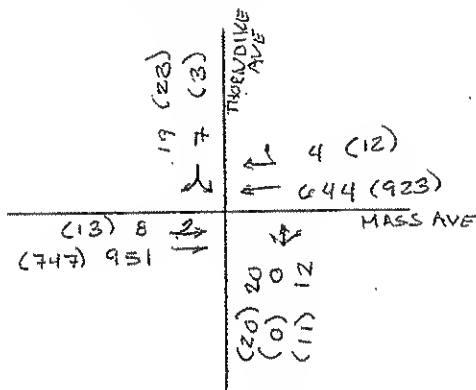 THORNDIKE
AVE
19 (23)
7 (3)
4 (12)
644 (923)
MASS AVE
(13) 8
(747) 951
20 0 12
(20) (0) (11)